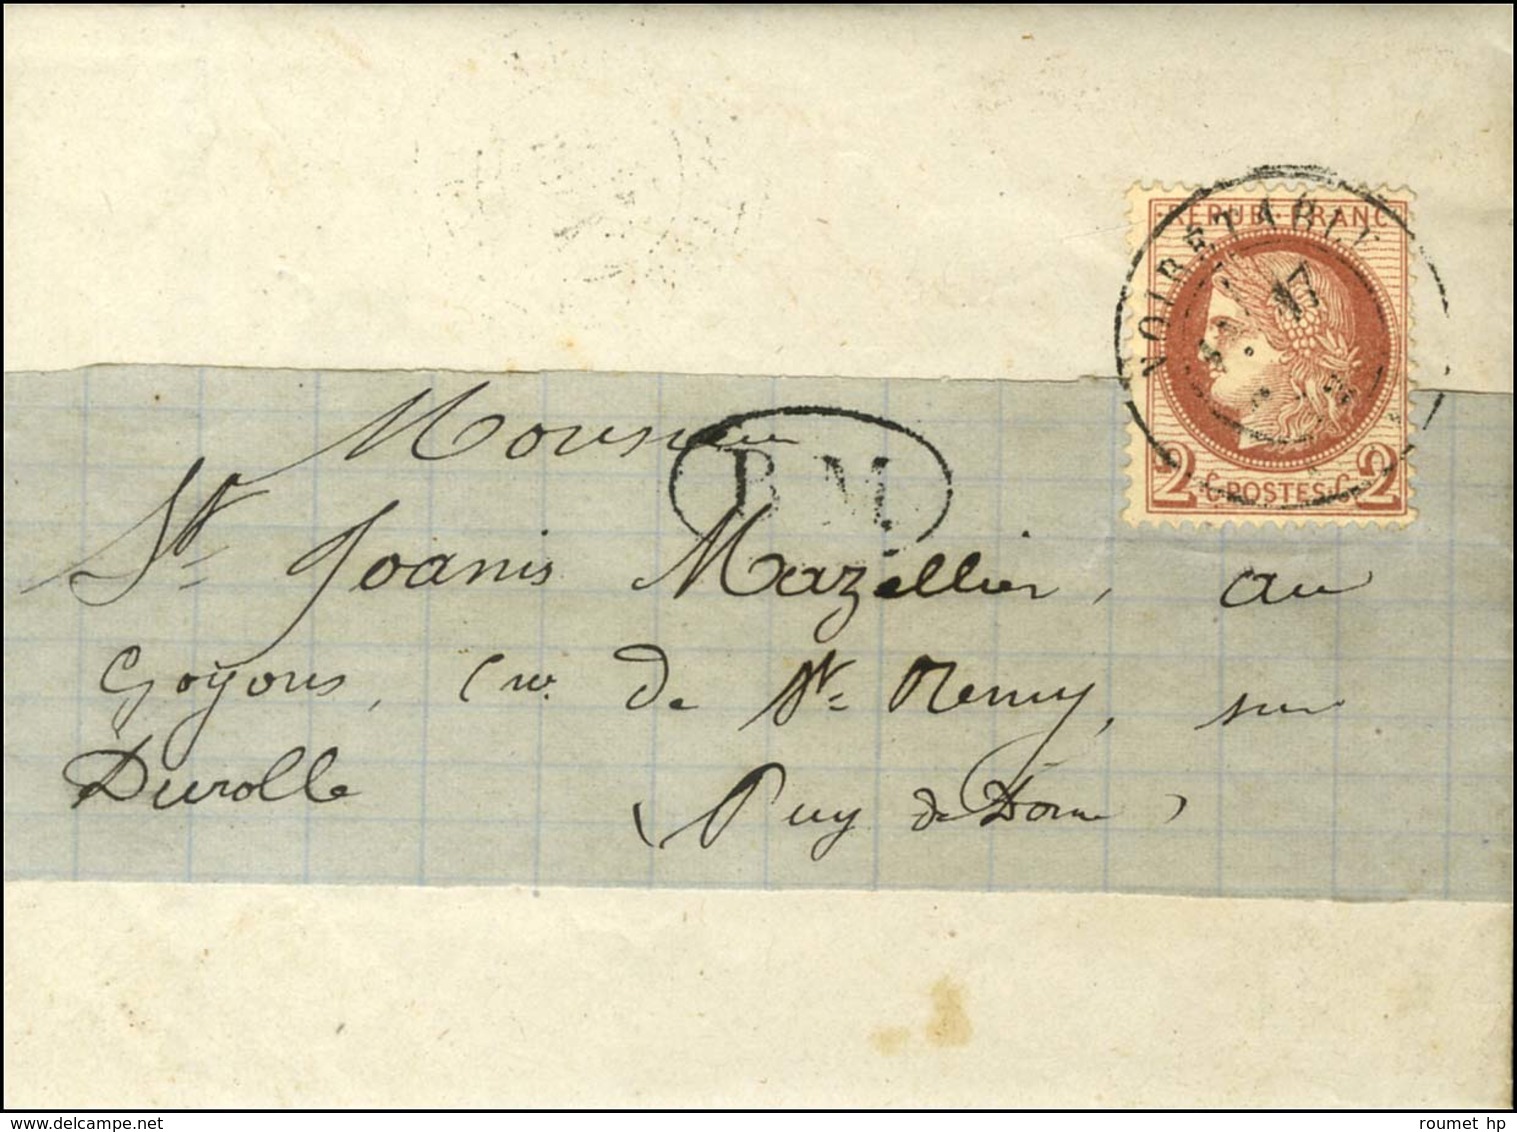 REPUB. FRANC
NOIRETABLE
17
2 C. POSTES. C. 2
Monsieur
B M
St Joanis Mazellier, au
Goyons, Cne de St Remy, sur
Durolle (Puy de Dôme)
www.delcampe.net
roumet hp